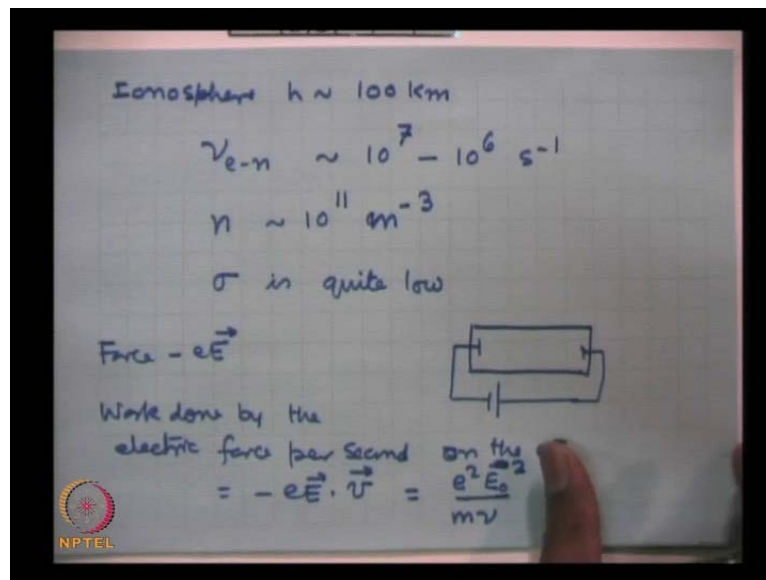 Ionosphere h ~ 100 km
ν_{e-n} ~ 10^7 - 10^6 s^{-1}
n ~ 10^{11} m^{-3}
σ is quite low
Force - eE⃗
Work done by the
electric force per second on the
= - eE⃗ . v⃗ = e^2 E_0^2 / mν
NPTEL